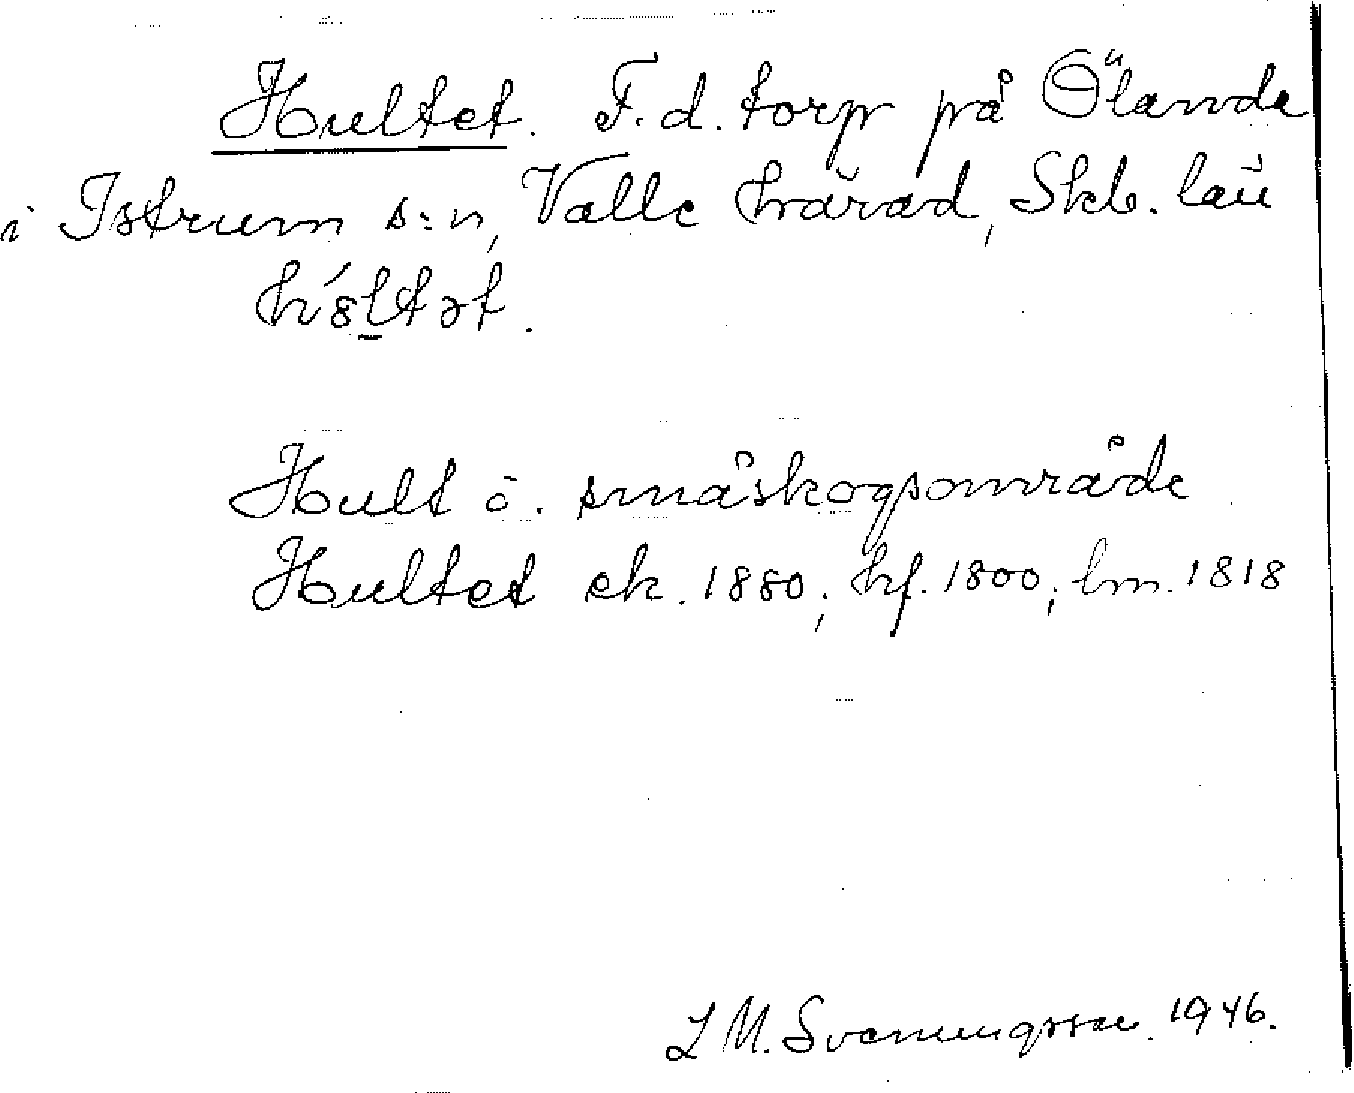 Hultet. F. d. torp på Ölanda
i Istrum s:n, Valle härad, Skb. län
Hult ö. småskogsområde
Hultet ek. 1880; hf. 1800; lm. 1818
L M. Svenungsson 1946.